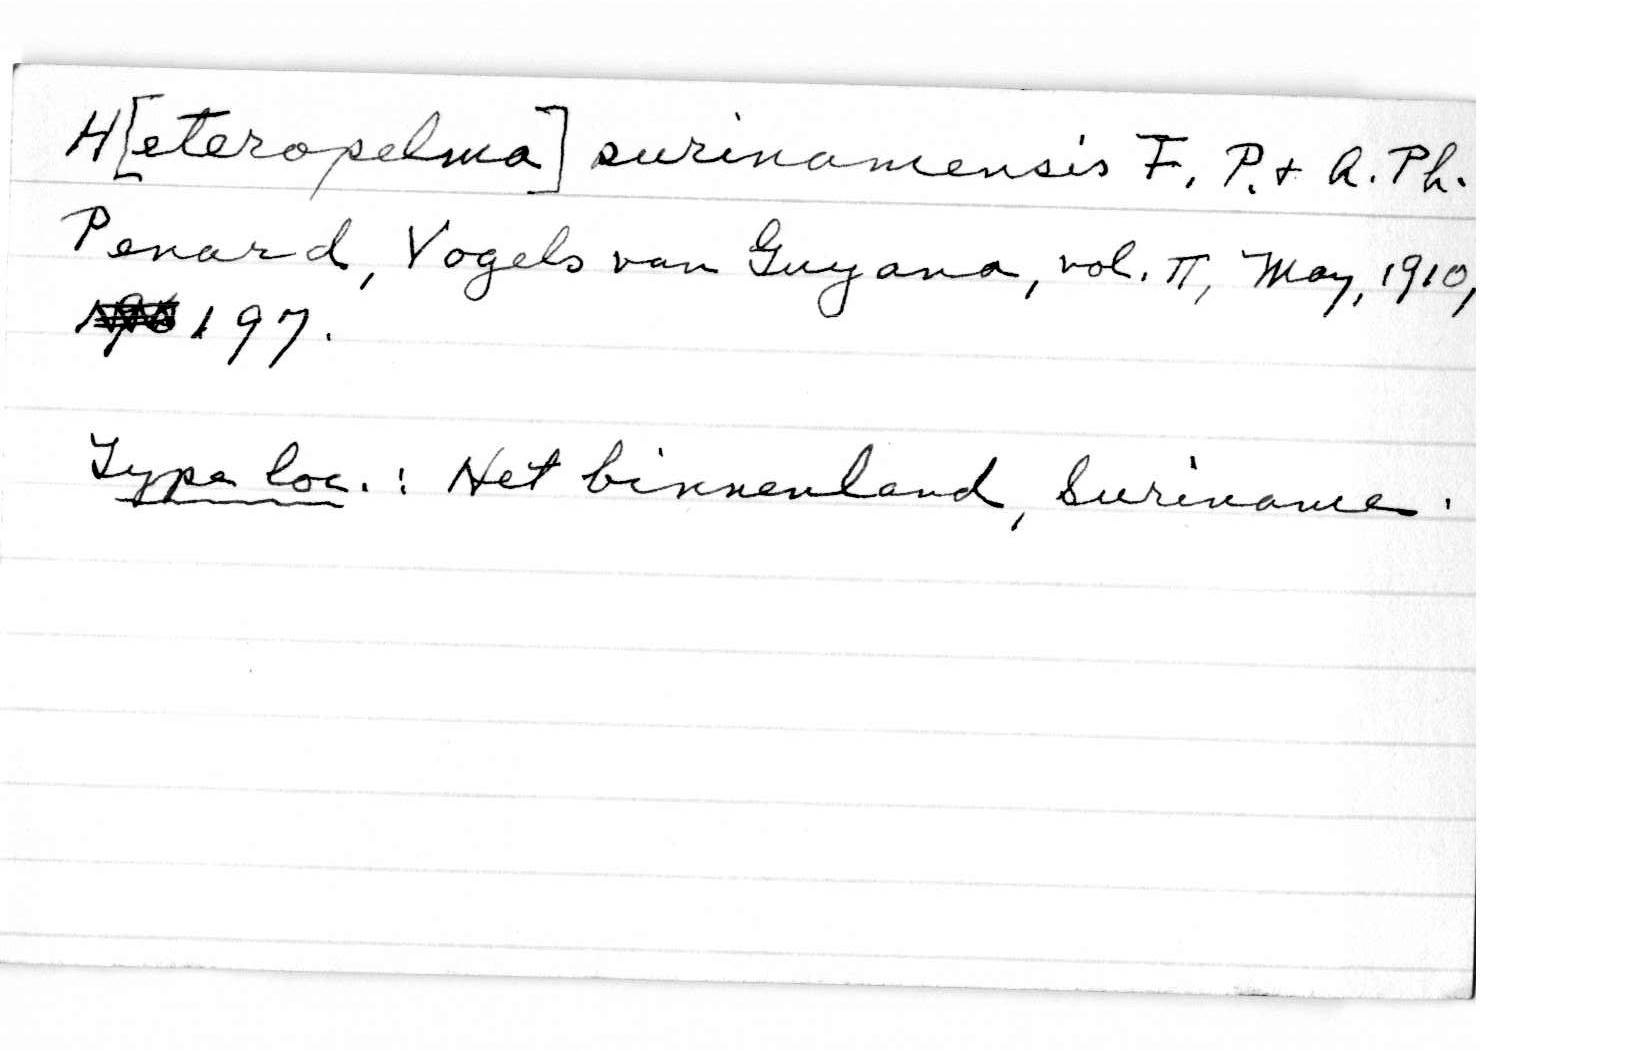 H[eteropelma] surinamensis F. P. & A. Ph.
Penard, Vogels van Guyana, vol. II, May, 1910,
197.
Type loc. : Het binnenland, Suriname.